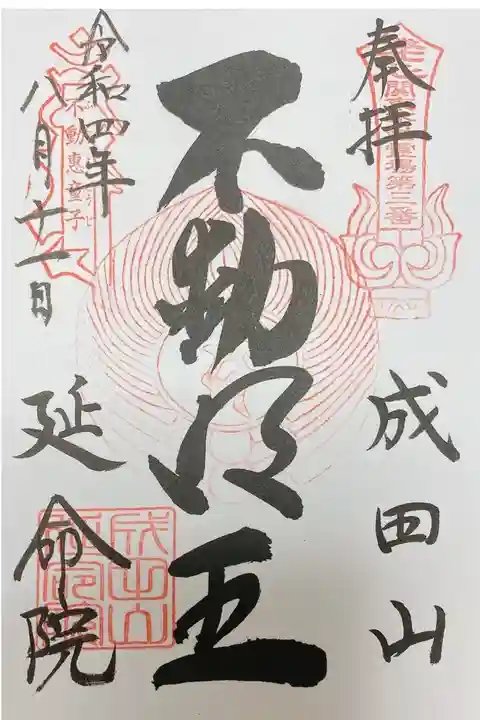 奉拝
成田山
不動明王
令和四年
八月十一日
延命院
動恵童子
霊場第三番
成田山